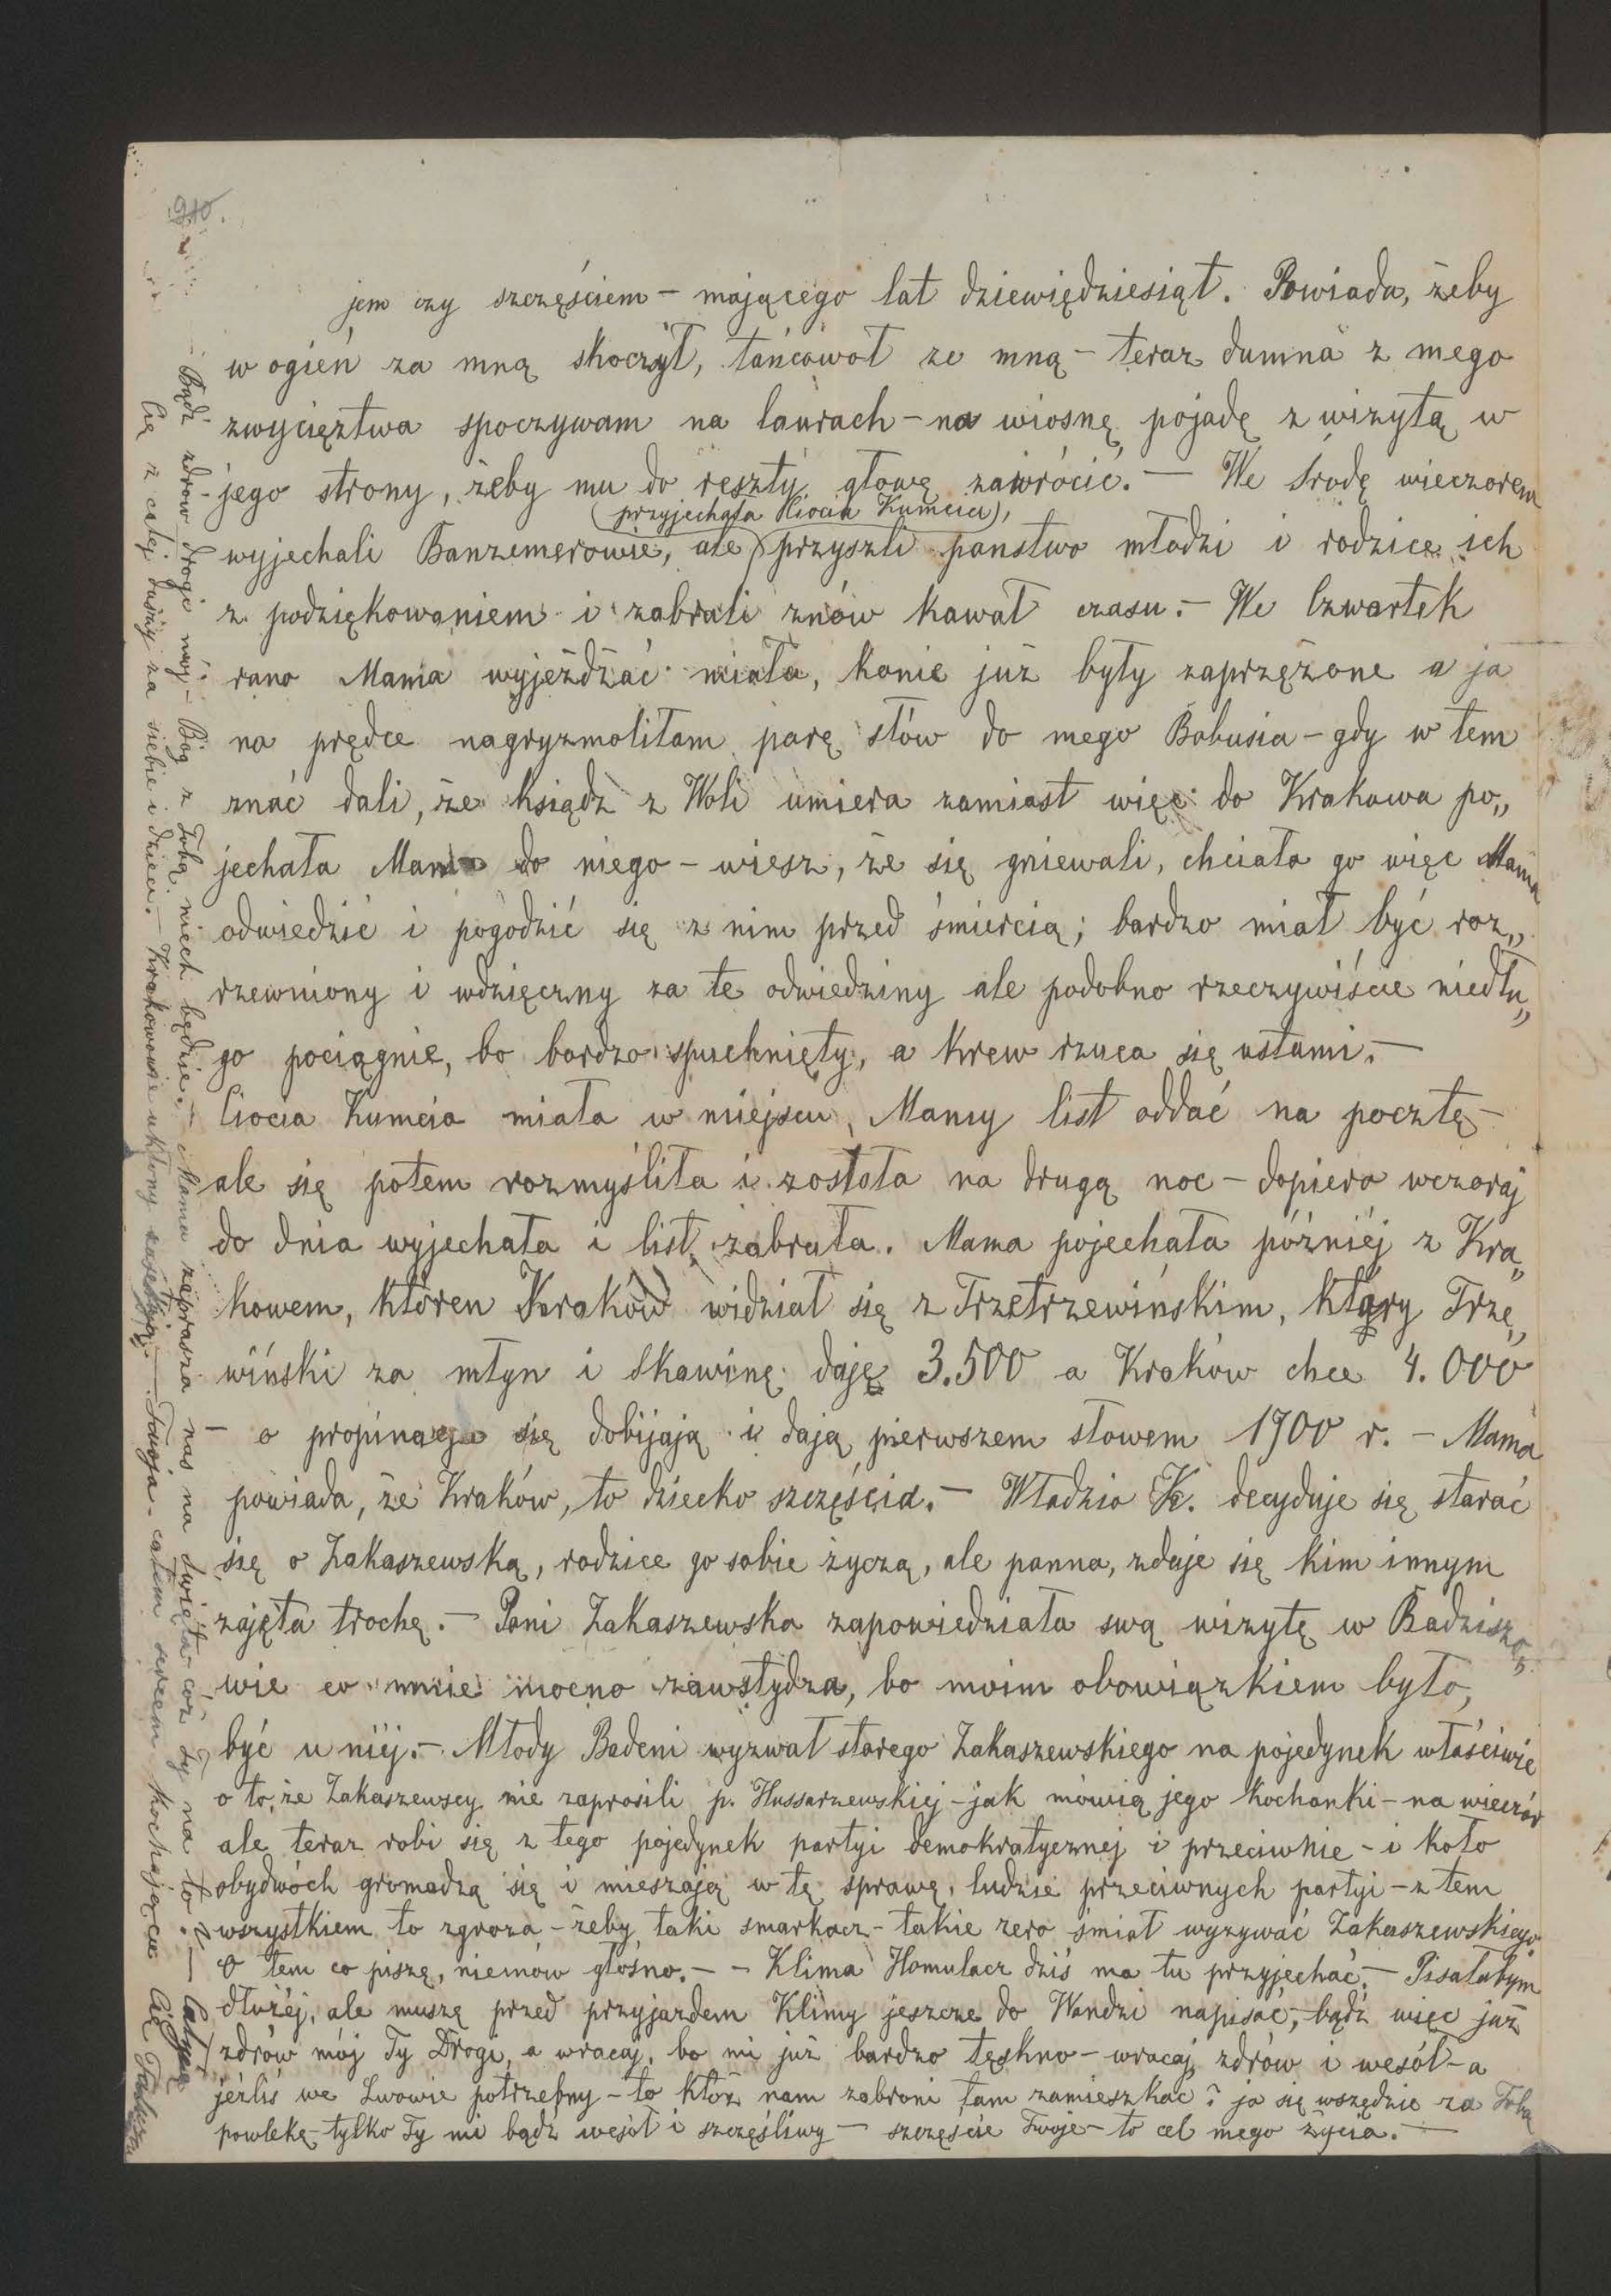 910.
jem czy szczęściem – mającego lat dziewiędziesiąt. Powiada, żeby
w ogień za mną skoczył, tańcował ze mną – teraz dumna z mego
zwycięztwa spoczywam na laurach – na wiosnę pojadę z wizytą w
jego strony, żeby mu do reszty głowę zawrócić. – We Środę wieczorem
(przyjechała Ciocia Kumcia),
wyjechali Banzemerowie, ale przyszli państwo młodzi i rodzice ich
z podziękowaniem i zabrali znów kawał czasu. – We Czwartek
rano Mama wyjeżdżać miała, konie już były zaprzężone a ja
na prędce nagryzmoliłam parę słów do mego Bobusia – gdy w tem
znać dali, że ksiądz z Woli umiera zamiast więc do Krakowa po„
jechała Mama do niego – wiesz, że się gniewali, chciała go więc Mama
odwiedzić i pogodzić się z nim przed śmiercią; bardzo miał być roz„
rzewniony i wdzięczny za te odwiedziny ale podobno rzeczywiście niedłu„
go pociągnie, bo bardzo spuchnięty, a krew rzuca się ustami. –
Ciocia Kumcia miała w miejscu Mamy list oddać na pocztę –
ale się potem rozmyśliła i została na drugą noc – dopiero wczoraj
do dnia wyjechała i list zabrała. Mama pojechała później z Kra„
kowem, któren Kraków widział się z Trzetrzewińskim, który Trzę„
wiński za młyn i Skawinę daję 3.500 a Kraków chce 4.000
– o propinacyę się dobijają i dają pierwszem słowem 1900 r. – Mama
powiada, że Kraków, to dziecko szczęścia. – Władzio K. decyduje się starać
się o Zakaszewską, rodzice go sobie życzą, ale panna, zdaje się kim innym
zajęta trochę. – Pani Zakaszewska zapowiedziała swą wizytę w Radziszo„
wie co mnie mocno zawstydza, bo moim obowiązkiem było,
być u niéj. – Młody Badeni wyzwał starego Zakaszewskiego na pojedynek właściwie
o to, że Zakaszewscy nie zaprosili p. Hussarzewskiej – jak mówią jego kochanki – na wieczór
ale teraz robi się z tego pojedynek partyi demokratycznej i przeciwnie – i koło
obydwóch gromadzą się i mieszają w tę sprawę, ludzie przeciwnych partyi – z tem
wszystkiem to zgroza – żeby taki smarkacz – takie zero śmiał wyzywać Zakaszewskiego.
O tem co piszę, niemów głośno. – – Klima Homulacz dziś ma tu przyjechać. – Pisałabym
dłużéj, ale muszę przed przyjazdem Klimy jeszcze do Wandzi napisać, bądź więc już
zdrów mój Ty Drogi, a wracaj, bo mi już bardzo tęskno – wracaj zdrów i wesół – a
jeźliś we Lwowie potrzebny – to któż nam zabroni tam zamieszkać? ja się wszędzie za Tobą
powlekę – tylko Ty mi bądź wesół i szczęśliwy – szczęście Twoje – to cel mego życia. –
Bądź zdrów drogi mój – Bóg z Tobą niech będzie. – Mama zaprasza nas na Święta – cóż Ty na to? – Całuję
Cię z całej duszy za siebie i dzieci. – Krakowowie ukłony zasełają. – Twoja całem sercem kochająca Cię